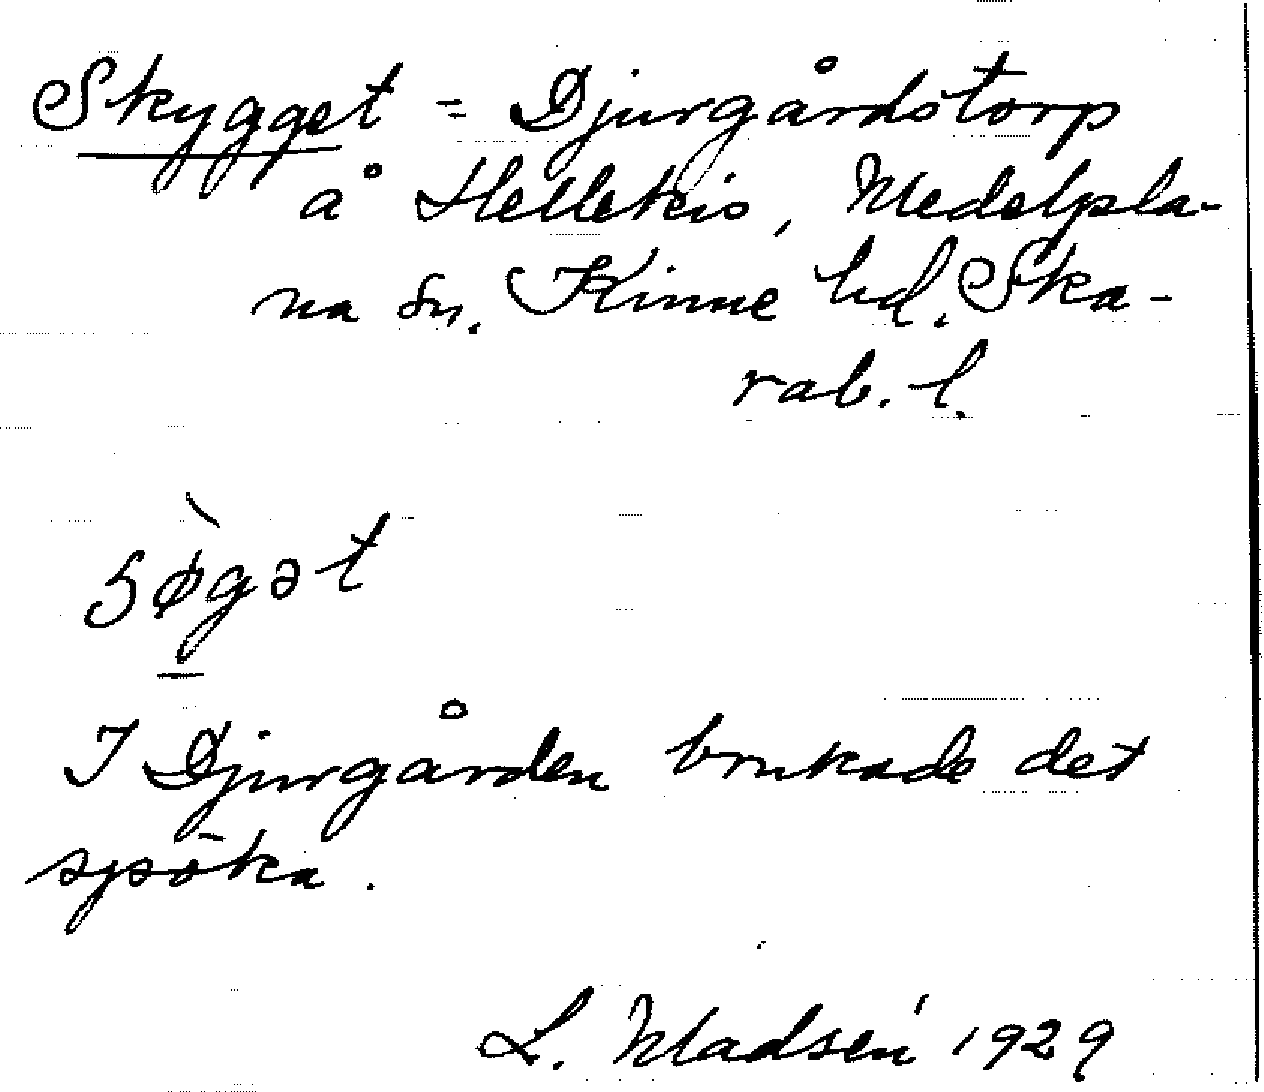 Skygget = Djurgårdstorp
å Hellekis, Medelpla-
na sn. Kinne hd. Ska-
rab. l.
ʃø̀gət
I Djurgården brukade det
spöka.
L. Madsén 1929